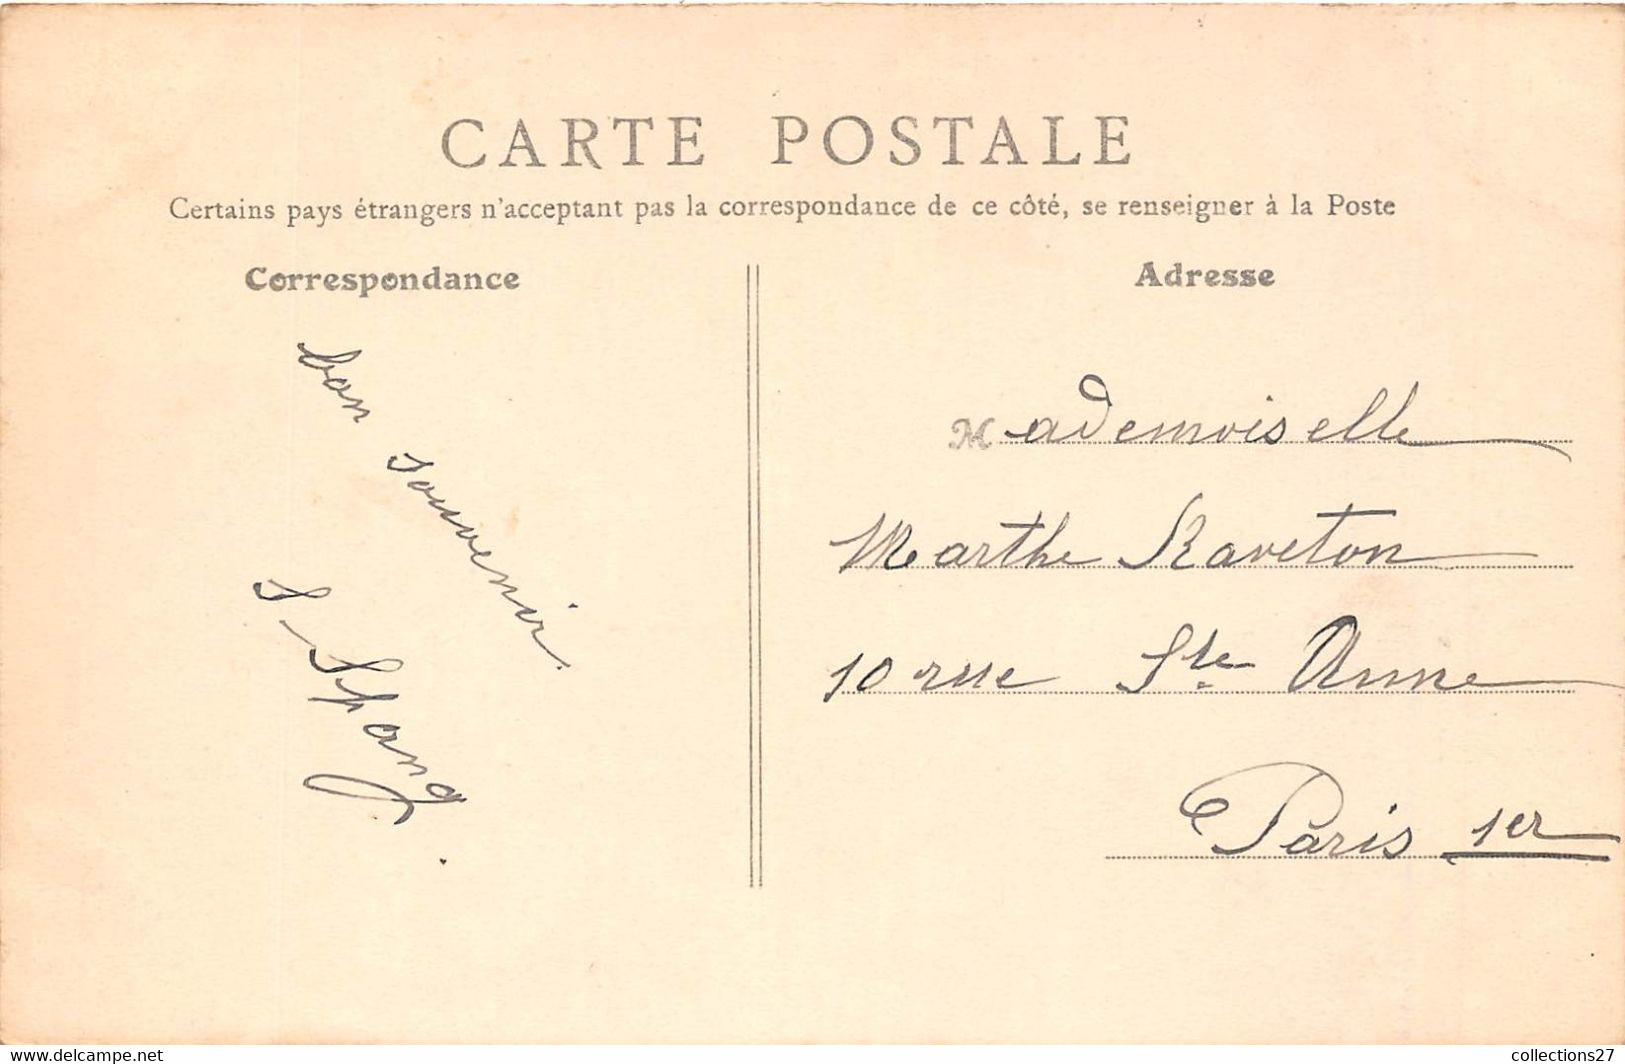 CARTE POSTALE
Certains pays étrangers n'acceptant pas la correspondance de ce côté, se renseigner à la Poste
Correspondance
bon souvenir.
S. Spang
Adresse
Mademoiselle
Marthe Raveton
10 rue Ste Anne
Paris 1er
www.delcampe.net
collections27